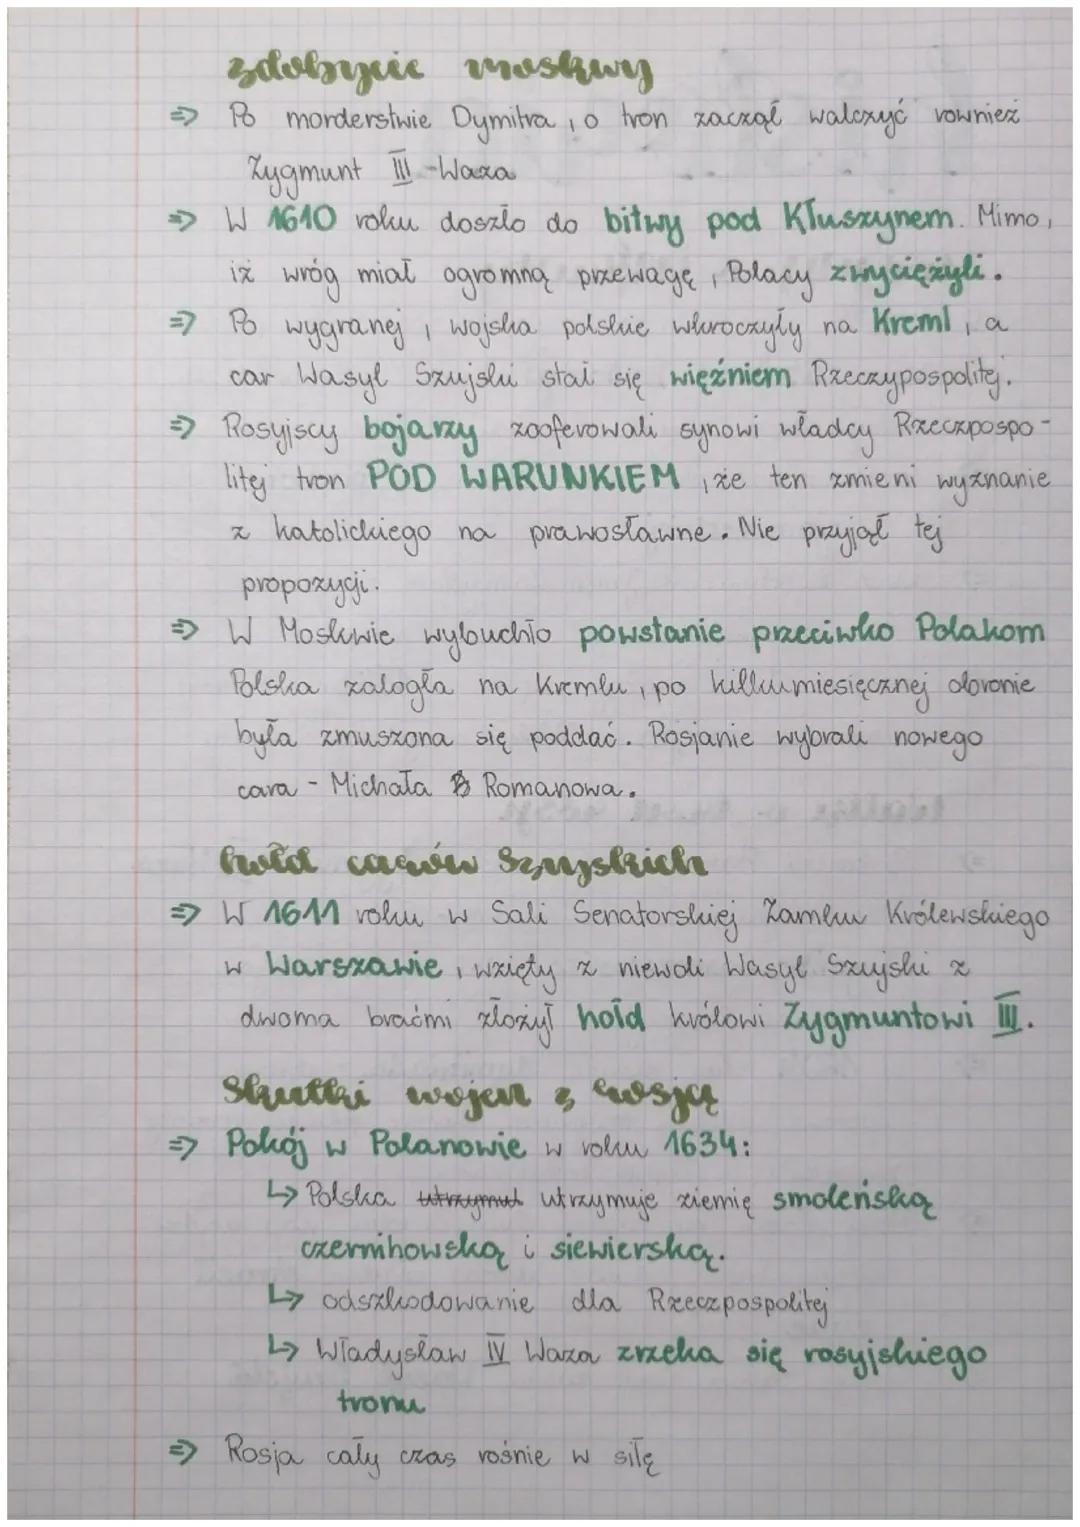 zdobycie moskwy
=> Po morderstwie Dymitra, o tron zaczął walczyć rownież
Zygmunt III -Waza
=> W 1610 roku doszło do bitwy pod Kłuszynem. Mimo,
iż wróg miał ogromną przewagę, Polacy zwyciężyli.
=> Po wygranej, wojska polskie wkroczyły na Kreml, a
car Wasyl Szujski stał się więźniem Rzeczypospolitej.
=> Rosyjscy bojarzy zooferowali synowi władcy Rzeczpospo-
litej tron POD WARUNKIEM, że ten zmieni wyznanie
z katolickiego na prawosławne. Nie przyjął tej
propozycji.
=> W Moskwie wybuchło powstanie przeciwko Polakom
Polska załogła na Kremlu, po kilkumiesięcznej obronie
była zmuszona się poddać. Rosjanie wybrali nowego
cara - Michała Romanowa.
hołd carów Szujskich
=> W 1611 roku w Sali Senatorskiej Zamku Królewskiego
w Warszawie, wzięty z niewoli Wasyl Szujski z
dwoma braćmi złożył hołd królowi Zygmuntowi III.
Skutki wojen z rosją
=> Pokój w Polanowie w roku 1634:
↳ Polska utrzymuł utrzymuje ziemię smoleńską
czernihowską i siewierską.
↳ odszkodowanie dla Rzeczpospolitej
↳ Władysław IV Waza zrzeka się rosyjskiego
tronu
=> Rosja cały czas rośnie w siłę